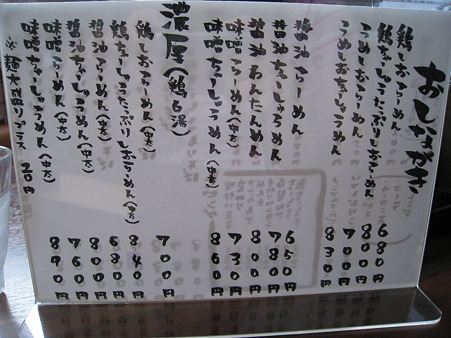 おしながき
鶏しおらーめん 680円
鶏ちゅーしゅうたっぷりしおらーめん 880円
うめしおらーめん 700円
うめしおちゃーしゅうめん 830円
醤油らーめん 650円
醤油ちゃーしゅうめん 780円
醤油わんたんめん 800円
味噌らーめん(中太) 730円
味噌ちゃーしゅうめん(中太) 860円
濃厚(鶏白湯)
鶏しおらーめん(中太) 700円
鶏ちゃーしゅうたっぷりしおらーめん(中太) 840円
醤油らーめん(中太)
味噌らーめん(中太)
味噌ちゃーしゅうめん(中太) 890円
※麺大盛りプラス